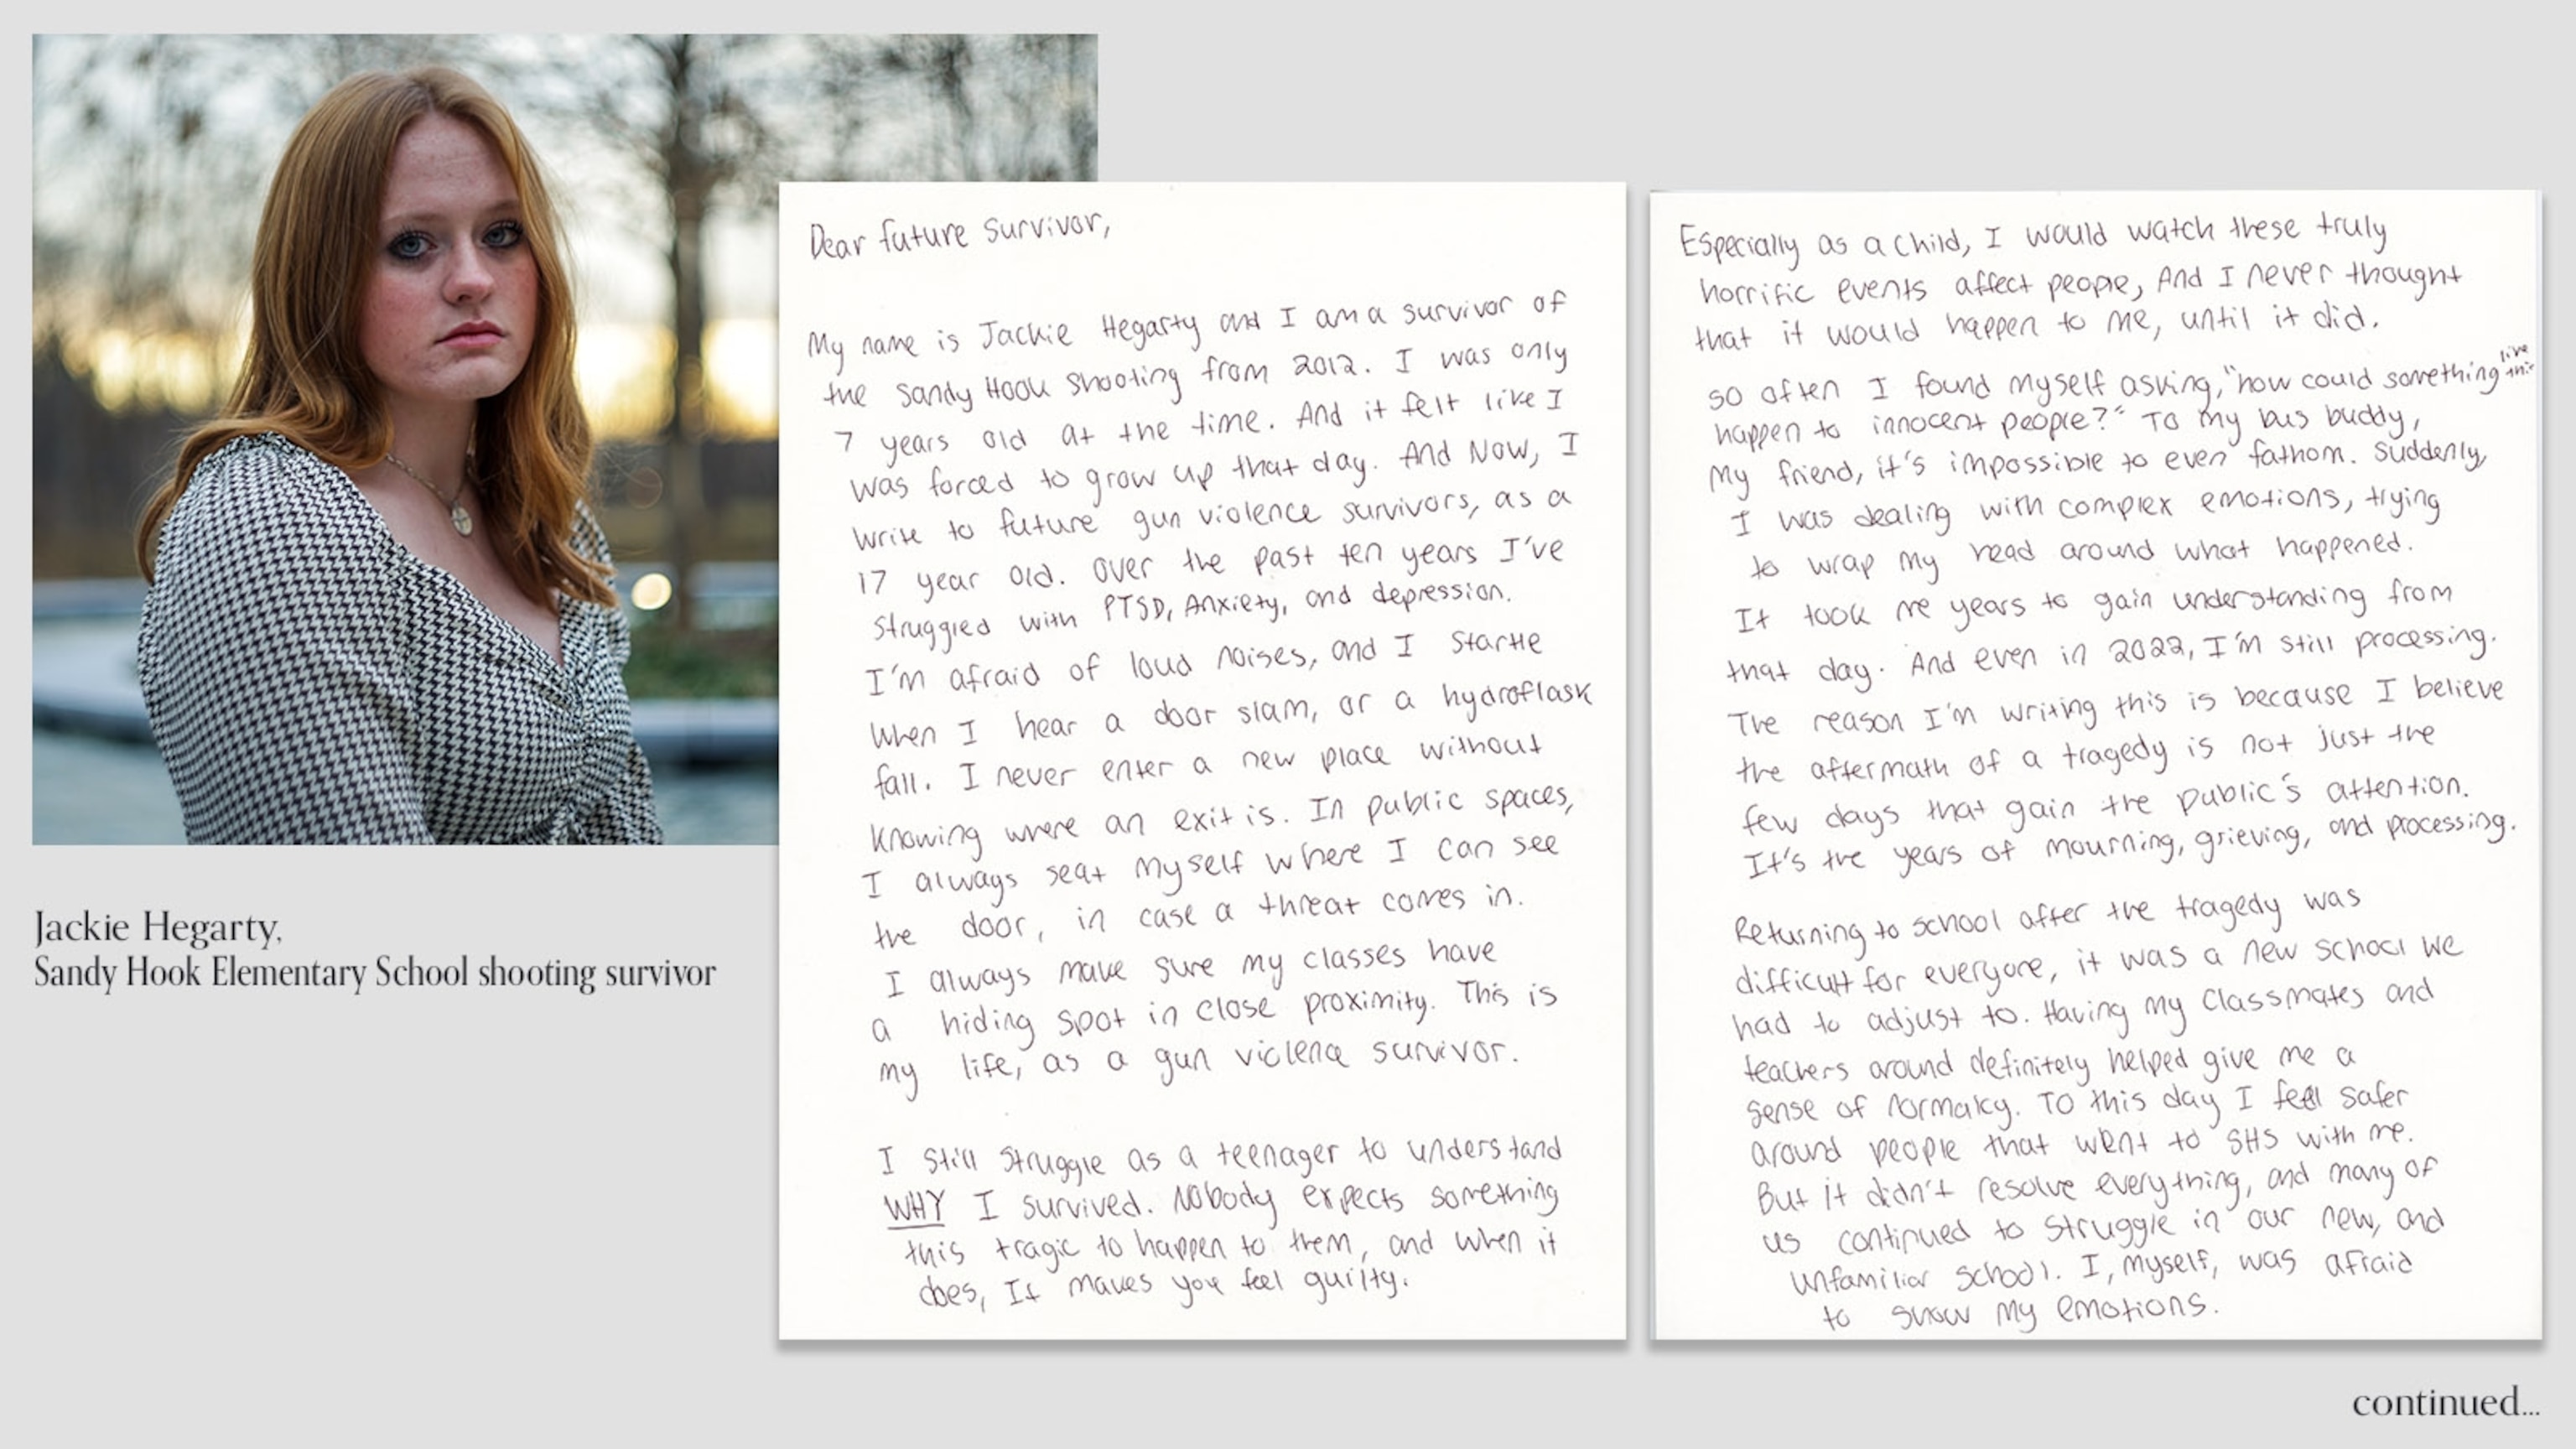 Jackie Hegarty,
Sandy Hook Elementary School shooting survivor
Dear future survivor,
My name is Jackie Hegarty and I am a survivor of
the Sandy Hook shooting from 2012. I was only
7 years old at the time. And it felt like I
was forced to grow up that day. And Now, I
write to future gun violence survivors, as a
17 year old. Over the past ten years I've
struggled with PTSD, Anxiety, and depression.
I'm afraid of loud noises, and I startle
when I hear a door slam, or a hydroflask
fall. I never enter a new place without
knowing where an exit is. In public spaces,
I always seat myself where I can see
the door, in case a threat comes in.
I always make sure my classes have
a hiding spot in close proximity. This is
my life, as a gun violence survivor.
I still struggle as a teenager to understand
WHY I survived. Nobody expects something
this tragic to happen to them, and when it
does, It makes you feel guilty.
Especially as a child, I would watch these truly
horrific events affect people, And I never thought
that it would happen to me, until it did.
so often I found myself asking, "how could something like this
happen to innocent people?" To my bus buddy,
my friend, it's impossible to even fathom. Suddenly,
I was dealing with complex emotions, trying
to wrap my head around what happened.
It took me years to gain understanding from
that day. And even in 2022, I'm still processing.
The reason I'm writing this is because I believe
the aftermath of a tragedy is not just the
few days that gain the public's attention.
It's the years of mourning, grieving, and processing.
Returning to school after the tragedy was
difficult for everyone, it was a new school we
had to adjust to. Having my classmates and
teachers around definitely helped give me a
sense of normalcy. To this day I feel safer
around people that went to SHS with me.
But it didn't resolve everything, and many of
us continued to struggle in our new, and
unfamiliar school. I, myself, was afraid
to show my emotions.
continued...